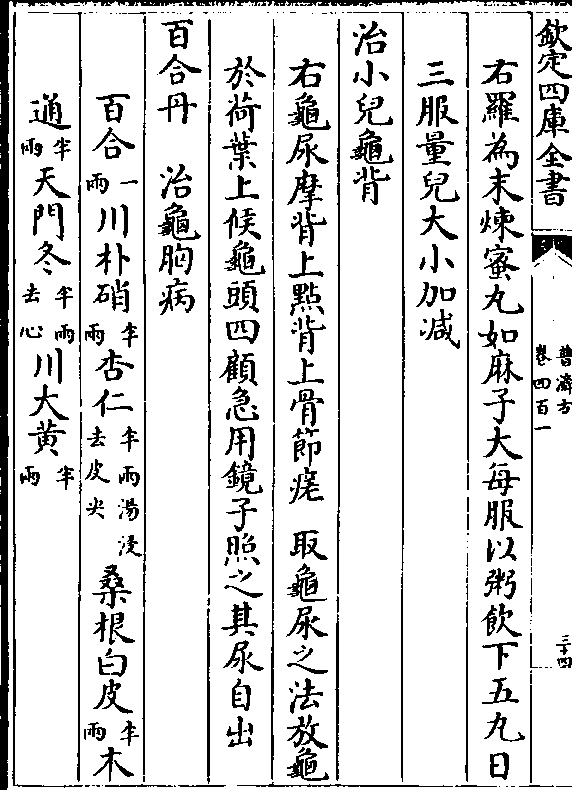 欽定四庫全書
普濟方
卷四百一
三十四
右羅為末煉蜜丸如麻子大每服以粥飲下五丸日
三服量兒大小加减
治小兒龜背
右龜尿摩背上點背上骨節瘥 取龜尿之法放龜
於荷葉上候龜頭四顧急用鏡子照之其尿自出
百合丹 治龜胸病
百合一兩川朴硝半兩杏仁半兩湯浸去皮尖桑根白皮半兩木
通半兩天門冬半兩去心川大黄半兩